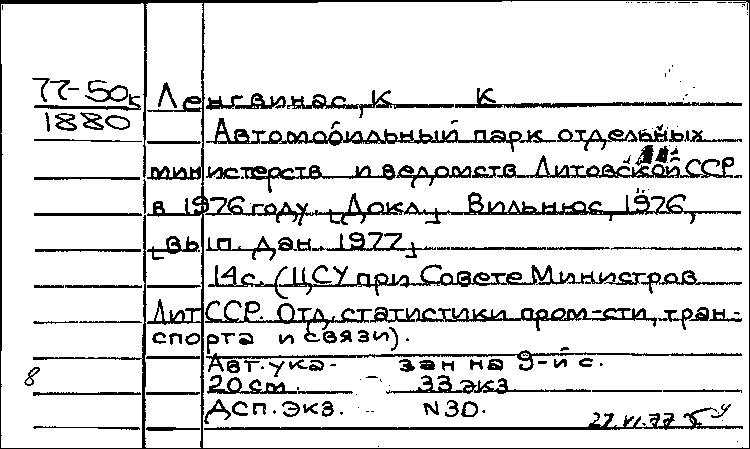 77-50к Ленгвинас, К К
1880
Автомобильный парк отдельных
министерств и ведомств Литовской ССР
в 1976 году. [Докл.] Вильнюс, 1976,
[вып. дан. 1977]
14с. (ЦСУ при Совете Министров
ЛитССР. Отд. статистики пром-сти, тран-
спорта и связи).
Авт. ука- зан на 9-й с.
8 20 см. 33 экз
ДСП. Экз. N30.
27.VI.77